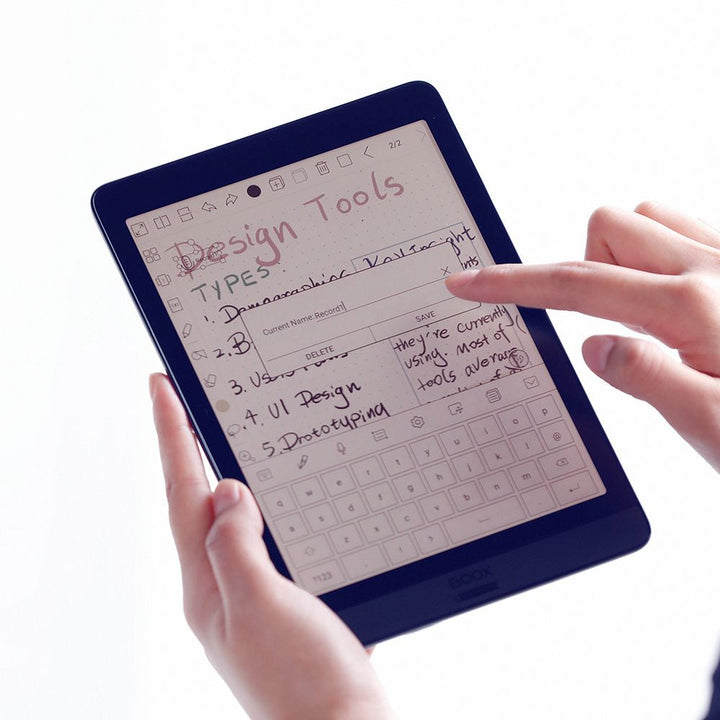 2/2
Design Tools
TYPES
Key Insight
1. Demographics
nts
Current Name:Record1
DELETE
SAVE
2. B
3. Users
4. UI Design
5. Prototyping
they're currently
using. most of
tools average
q w e r t y u i o p
a s d f g h j k l @
z x c v b n m
?123 , . !
BOOX